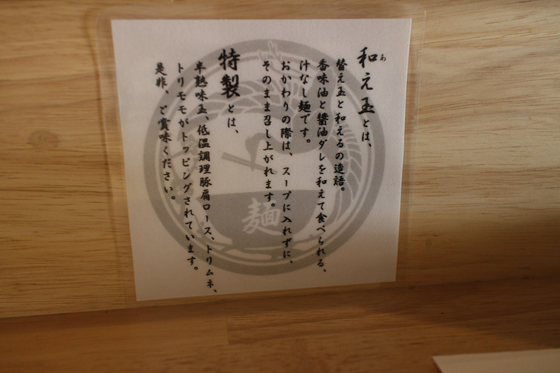 和え玉とは、
替え玉と和えるの造語。
香味油と醤油ダレを和えて食べられる、
汁なし麺です。
おかわりの際は、スープに入れずに、
そのまま召し上がれます。
特製とは、
半熟味玉、低温調理豚肩ロース、トリムネ、
トリモモがトッピングされています。
是非、ご賞味ください。
あ
麺